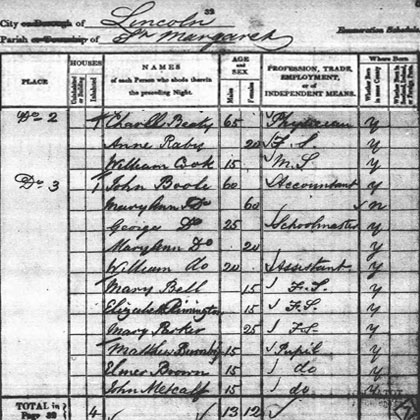 32
City or Borough of Lincoln
Parish or Township of St Margaret
Enumeration Schedule
PLACE
HOUSES
Uninhabited or Building
Inhabited
NAMES
of each Person who abode therein the preceding Night.
AGE and SEX
Males
Females
PROFESSION, TRADE, EMPLOYMENT, or of INDEPENDENT MEANS.
Where Born
Whether Born in same County
Do 2 1 65 Physician y
Anne 20 F. S. y
William Cook 15 M. S. y
Do 3 1 John Boole 60 Accountant y
Mary Ann Do 60 n
George Do 25 Schoolmaster y
Mary Ann Do 20 y
William do 20 Assistant y
Mary Bell 15 F. S. y
Elizabeth Rimington 15 F. S. y
Mary Parker 25 F. S. y
Matthew 15 Pupil y
Elmer Brown 15 do y
John Metcalf 15 do y
TOTAL in Page 32 4 13 12